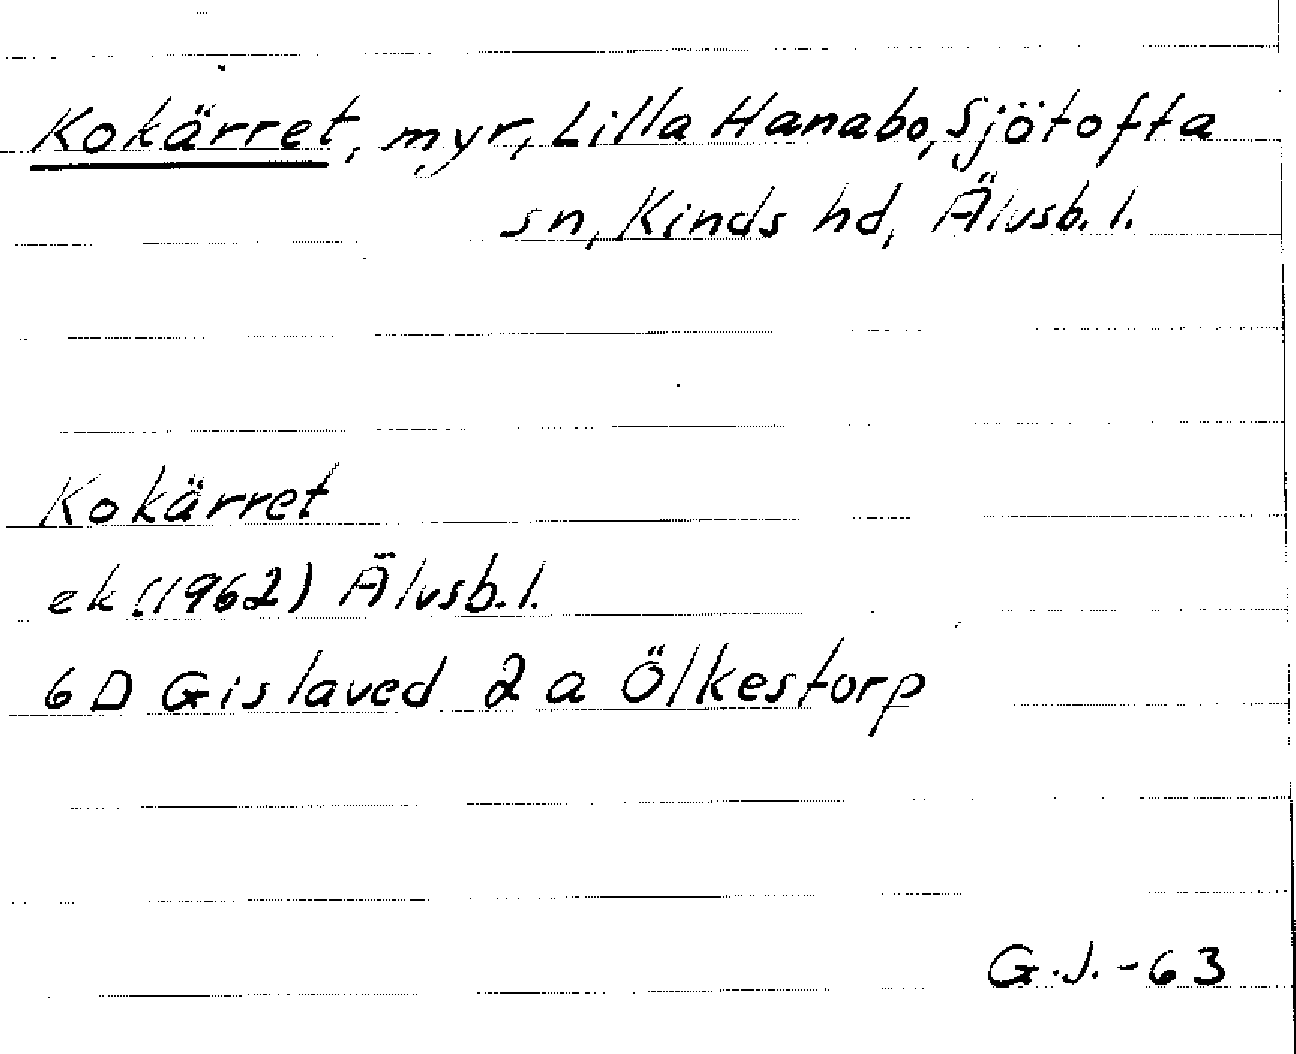 Kokärret, myr, Lilla Hanabo, Sjötofta
sn, Kinds hd, Älvsb. l.
Kokärret
ek (1962) Älvsb. l.
6D Gislaved 2a Ölkestorp
G.J. -63